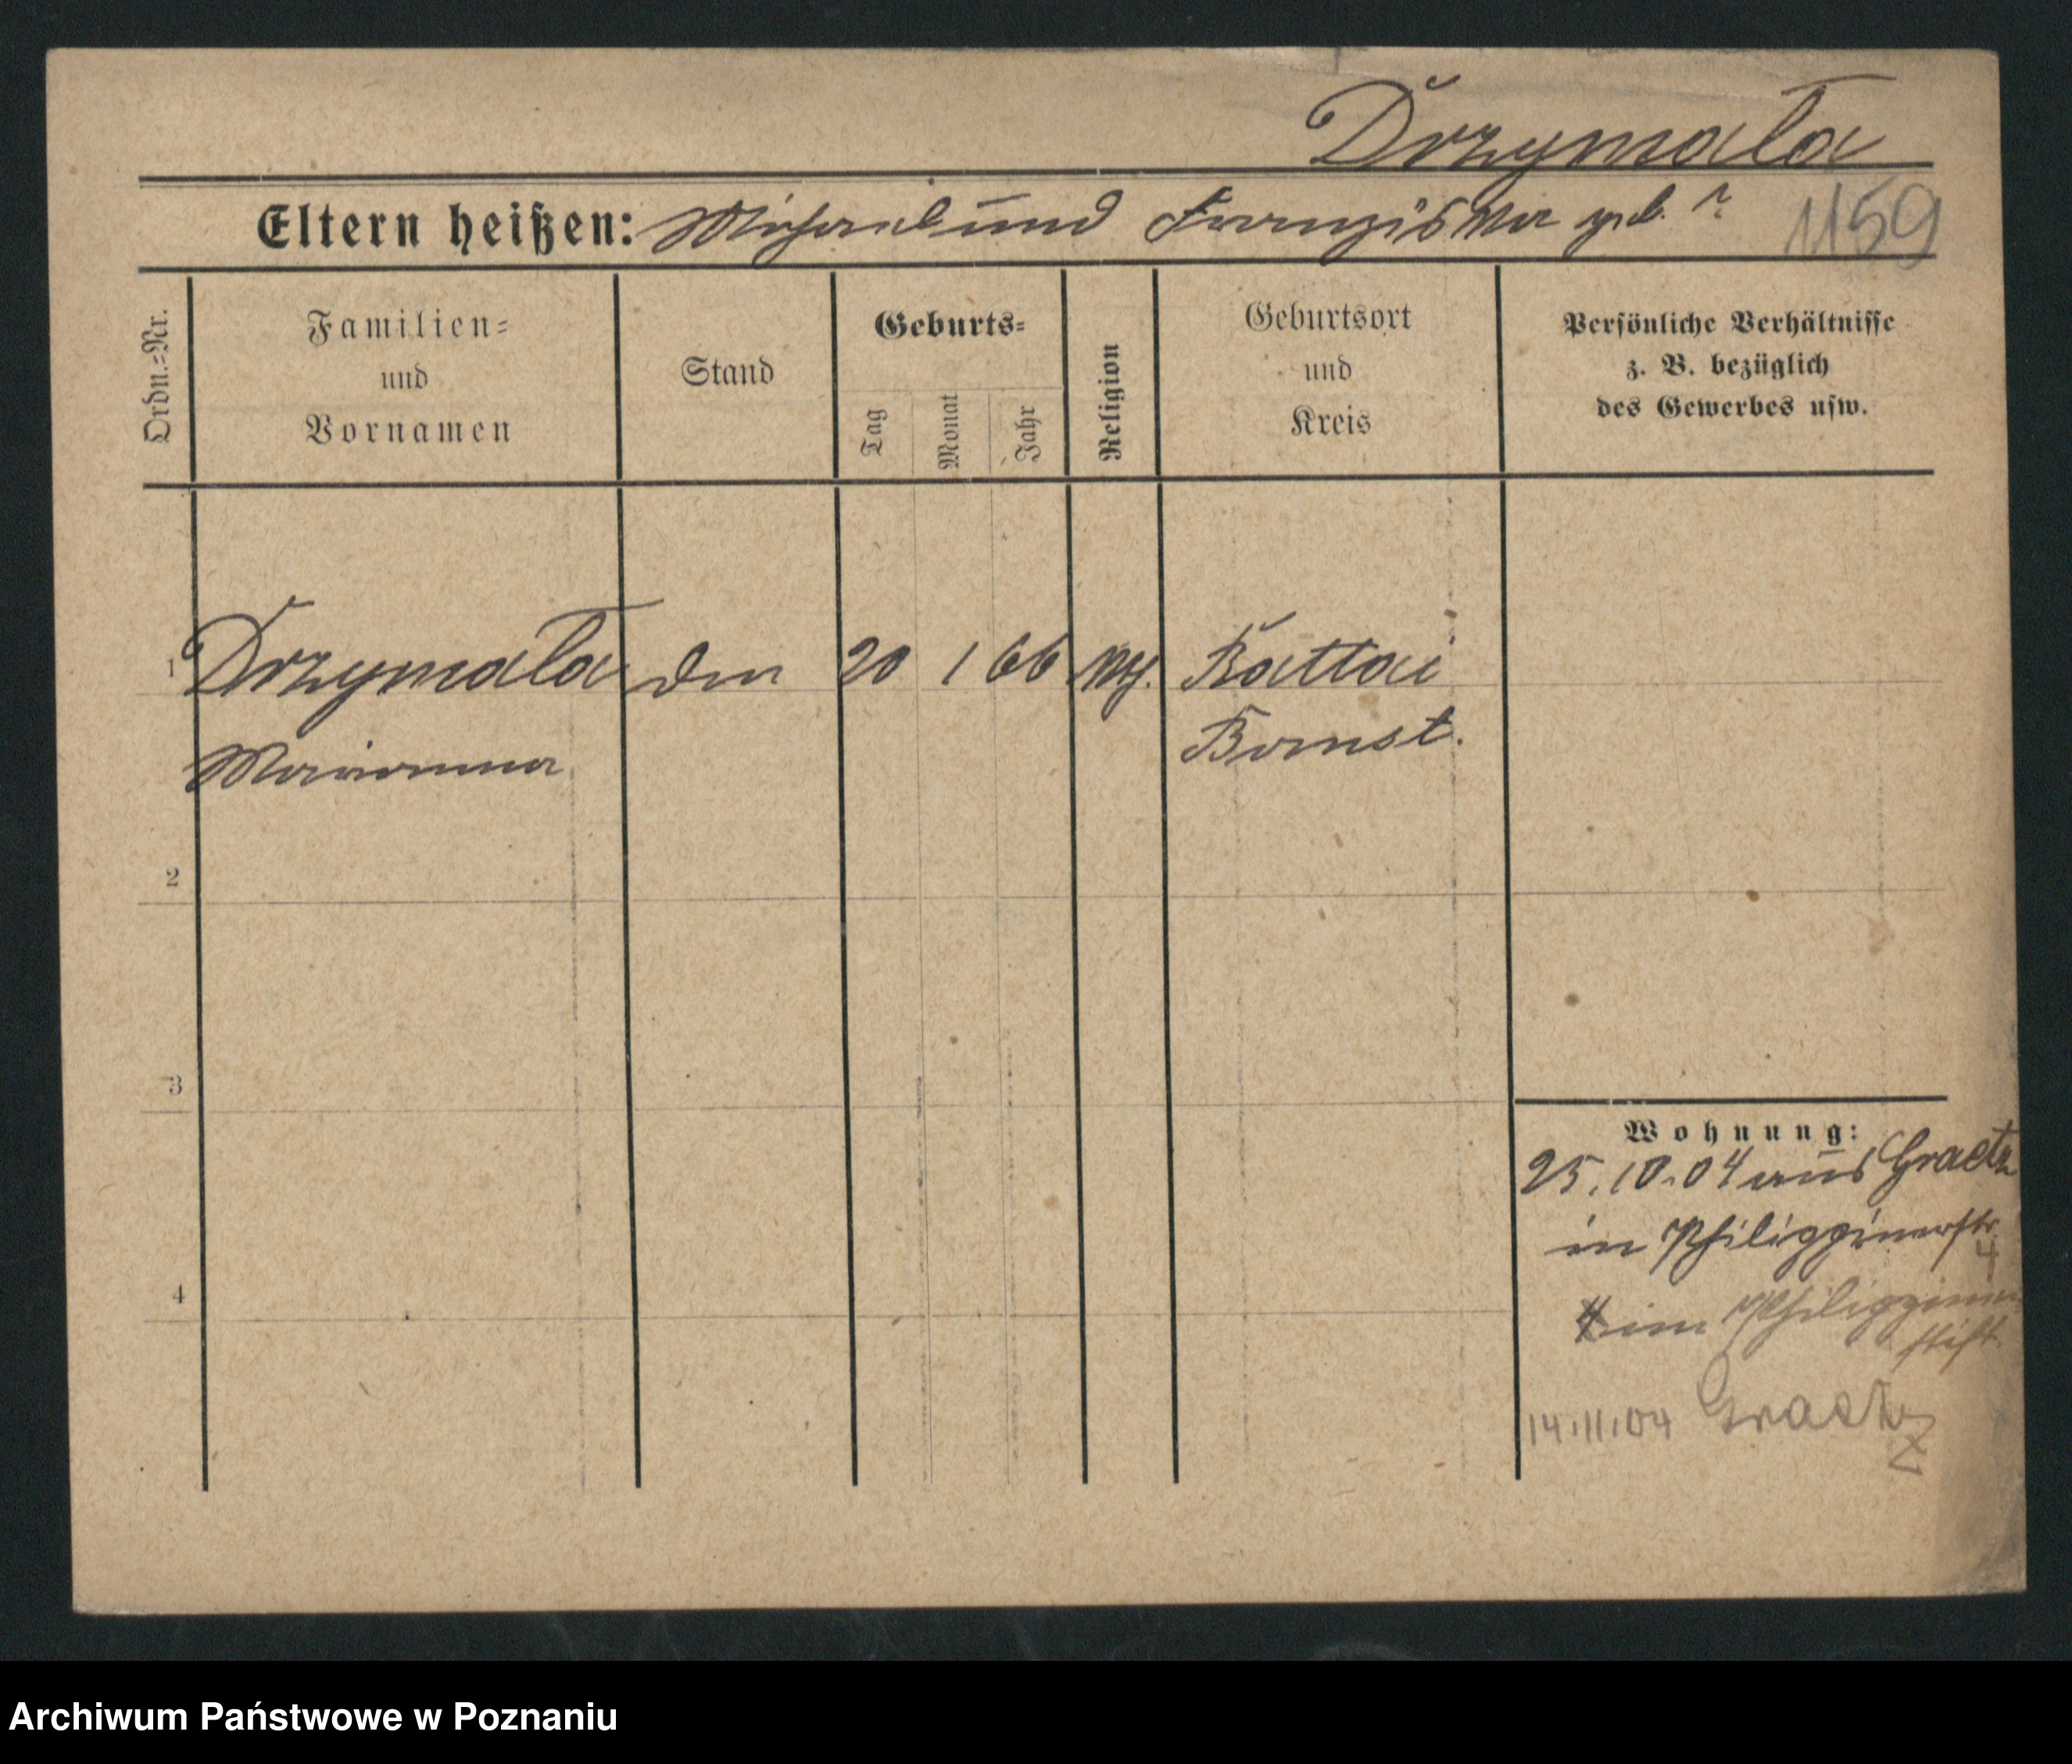 Drzymała
Eltern heißen: Michael und Franziska geb. ?
1159
Ordn.-Nr.
Familien-
und
Vornamen
Stand
Geburts-
Tag
Monat
Jahr
Religion
Geburtsort
und
Kreis
Persönliche Verhältnisse
z. B. bezüglich
des Gewerbes usw.
1 Drzymała 20 1 66 kth. Rattai
Marianna Bomst.
2
3
4
Wohnung:
25.10.04 aus Graetz
in Philippinerstr.
4
im Philippinen
stift.
14.11.04 Graetz
Archiwum Państwowe w Poznaniu